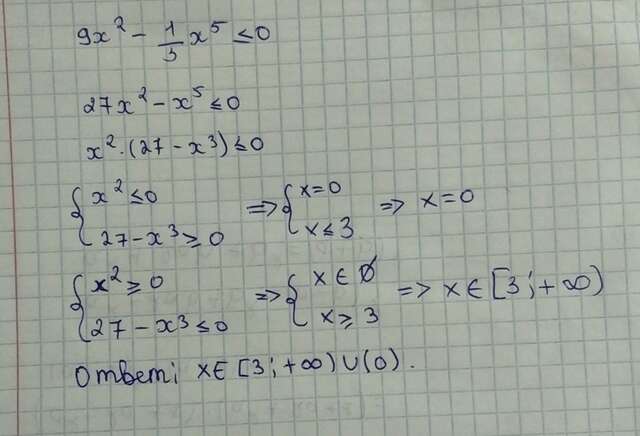 9x² - 1/3 x⁵ ≤ 0
27x² - x⁵ ≤ 0
x² · (27 - x³) ≤ 0
{ x² ≤ 0 ; 27 - x³ ≥ 0 => { x = 0 ; x ≤ 3 => x = 0
{ x² ≥ 0 ; 27 - x³ ≤ 0 => { x ∈ ∅ ; x ≥ 3 => x ∈ [3; +∞)
Ответ: x ∈ [3; +∞) ∪ (0).